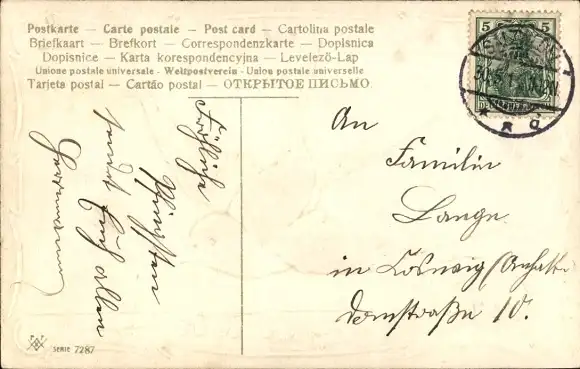 Postkarte — Carte postale — Post card — Cartolina postale
Briefkaart — Brefkort — Correspondenzkarte — Dopisnica
Dopisnice — Karta korespondencyjna — Levelező-Lap
Unione postale universale - Weltpostverein - Union postale universelle
Tarjeta postal — Cartão postal — ОТКРЫТОЕ ПИСЬМО
5 5
Fröhliche
Pfingsten
sendet Euch allen
An
Familie
Lange
in Coswig (Anhalt
straße 10.
SERIE 7287